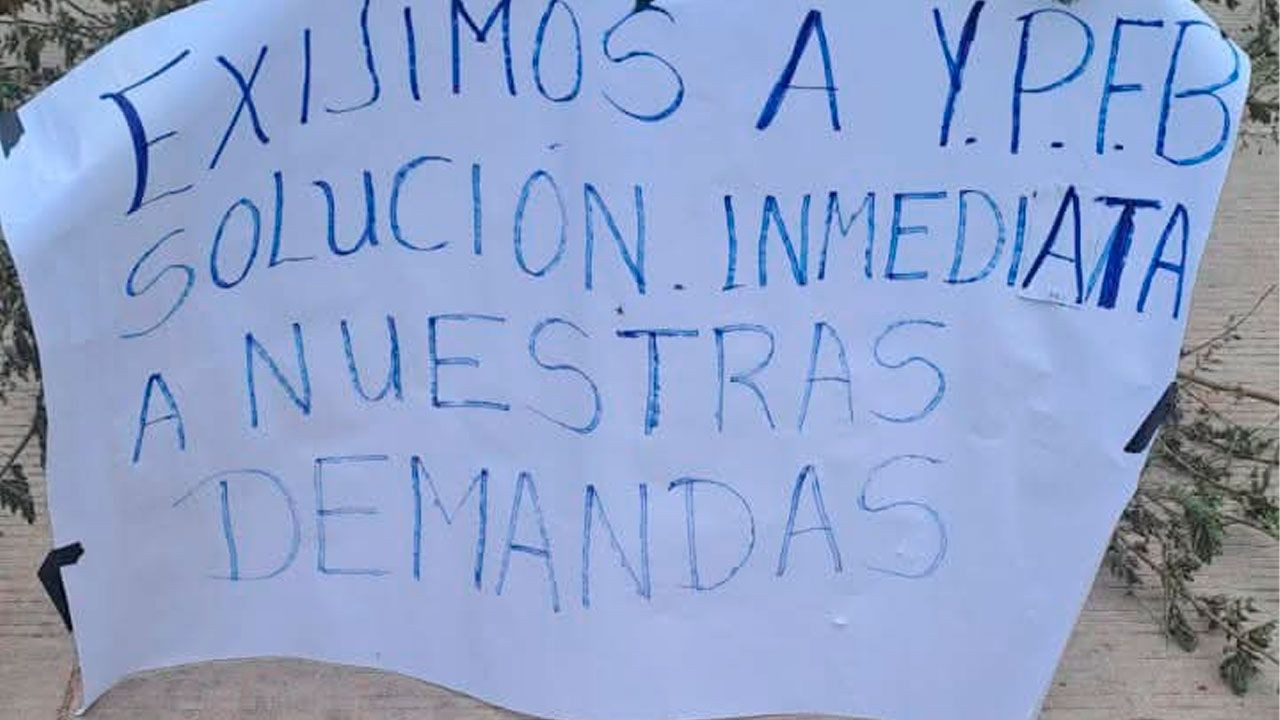 EXIJIMOS A Y.P.F.B
SOLUCIÓN. INMEDIATA
A NUESTRAS
DEMANDAS